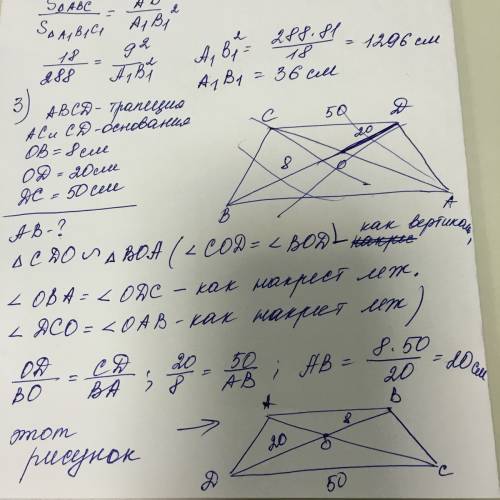 S△ABC / S△A₁B₁C₁ = AB² / A₁B₁²
18/288 = 9²/A₁B₁²
A₁B₁² = 288·81/18 = 1296 см
A₁B₁ = 36 см
3)
ABCD - трапеция
AC и CD - основания
OB = 8 см
OD = 20 см
DC = 50 см
C 50 D
20
8 O
B A
AB - ?
△CDO ∽ △BOA (∠COD = ∠BOD - как вертикал,
∠OBA = ∠ODC - как накрест леж.
∠DCO = ∠OAB - как накрест леж)
OD/BO = CD/BA ; 20/8 = 50/AB ; AB = 8·50/20 = 20 см
этот
рисунок
A B
8
20 O
D 50 C